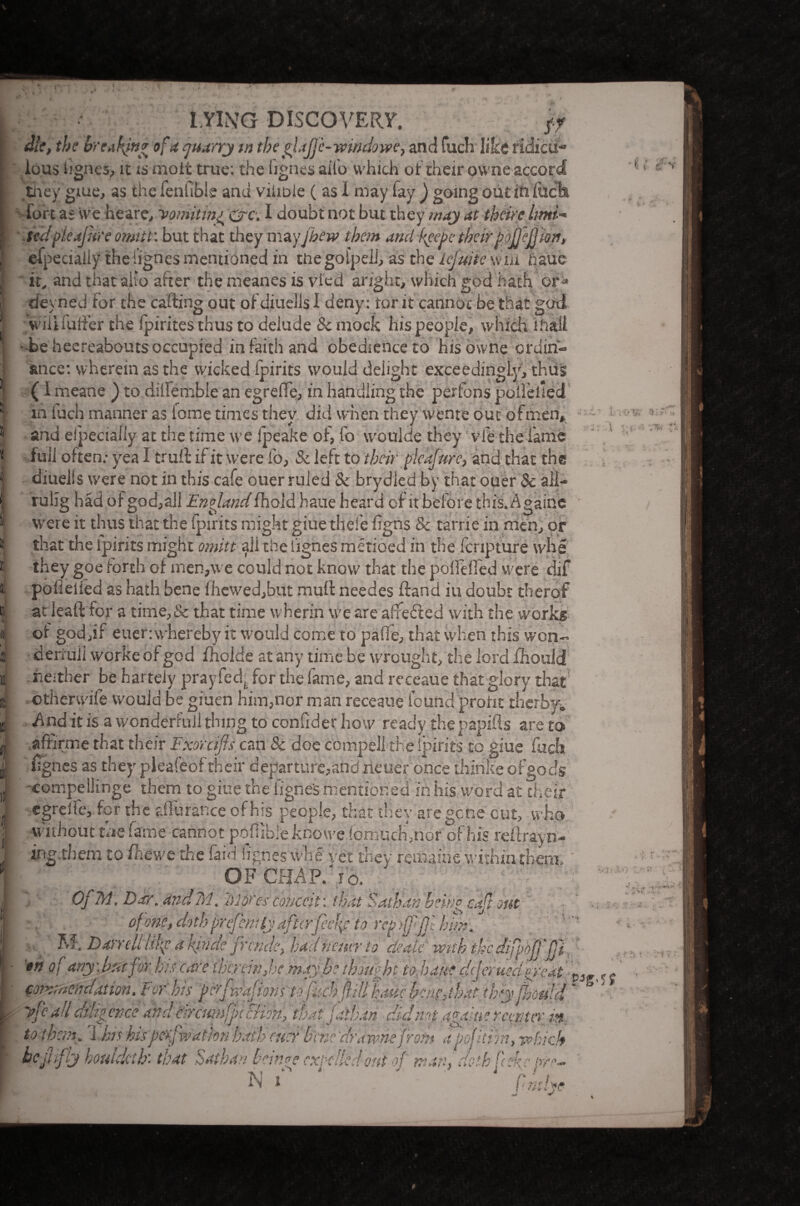 LYING DISCOVERY.
dle, the breaking of a quarry in the glasse-windowe, and such like ridicu-
lous signes, it is most true: the signes also which of their owne accord
they giue, as the sensible and visible ( as I may say ) going out in such
sort as we heare, vomiting &c. I doubt not but they may at theire limi-
ted pleasure omitt: but that they may shew them and keepe their possession,
especially the signes mentioned in the gospell, as the Iesuite will haue
it, and that also after the meanes is vsed aright, which god hath or-
deyned for the casting out of diuells I deny: for it cannot be that god
will suffer the spirites thus to delude & mock his people, which shall
be heereabouts occupied in faith and obedience to his owne ordin-
ance: wherein as the wicked spirits would delight exceedingly, thus
( I meane ) to dissemble an egresse, in handling the persons possessed
in such manner as some times they did when they wente out of men,
and especially at the time we speake of, so woulde they vse the same
full often: yea I trust if it were so, & left to their pleasure, and that the
diuells were not in this case ouer ruled & brydled by that ouer & all-
rulig had of god, all England shold haue heard of it before this. Againe
were it thus that the spirits might giue these signs & tarrie in men, or
that the spirits might omitt all the signes metioed in the scripture whe
they goe forth of men, we could not know that the possessed were dis
possessed as hath bene shewed, but must needes stand iu doubt therof
at least for a time, & that time wherin we are affected with the works
of god, if euer: whereby it would come to passe, that when this won-
derfull worke of god sholde at any time be wrought, the lord should
neither be hartely praysed, for the same, and receaue that glory that
otherwise would be giuen him, nor man receaue sound profit therby.
And it is a wonderfull thing to consider how ready the papists are to
affirme that their Exorcists can & doe compell the spirits to giue such
signes as they please of their departure, and neuer once thinke of gods
compellinge them to giue the signes mentioned in his word at their
egresse, for the assurance of his people, that they are gone out, who
without the same cannot possible knowe somuch, nor of his restrayn-
ing them to shewe the said signes whe yet they remaine within them.
OF CHAP. 16.
Of M. Dar. and M. Mores conceit: that Sathan being cast out
of one, doth presently after seeke to repossesse him.
M. Darrell like a kinde frende, had neuer to deale with the dispossessi
on of any: but for his care therein, he may be thought to haue deserued great
commendation. For his perswasions to such still haue bene, that they should
vse all diligence and circumspection, that sathan did not againe reenter in
to them. This his perswation hath euer bene drawne from a position, which
he stifly houldeth: that Sathan beinge expelled out of man, doth seeke pre-
pag. 55
N 1
sentlye